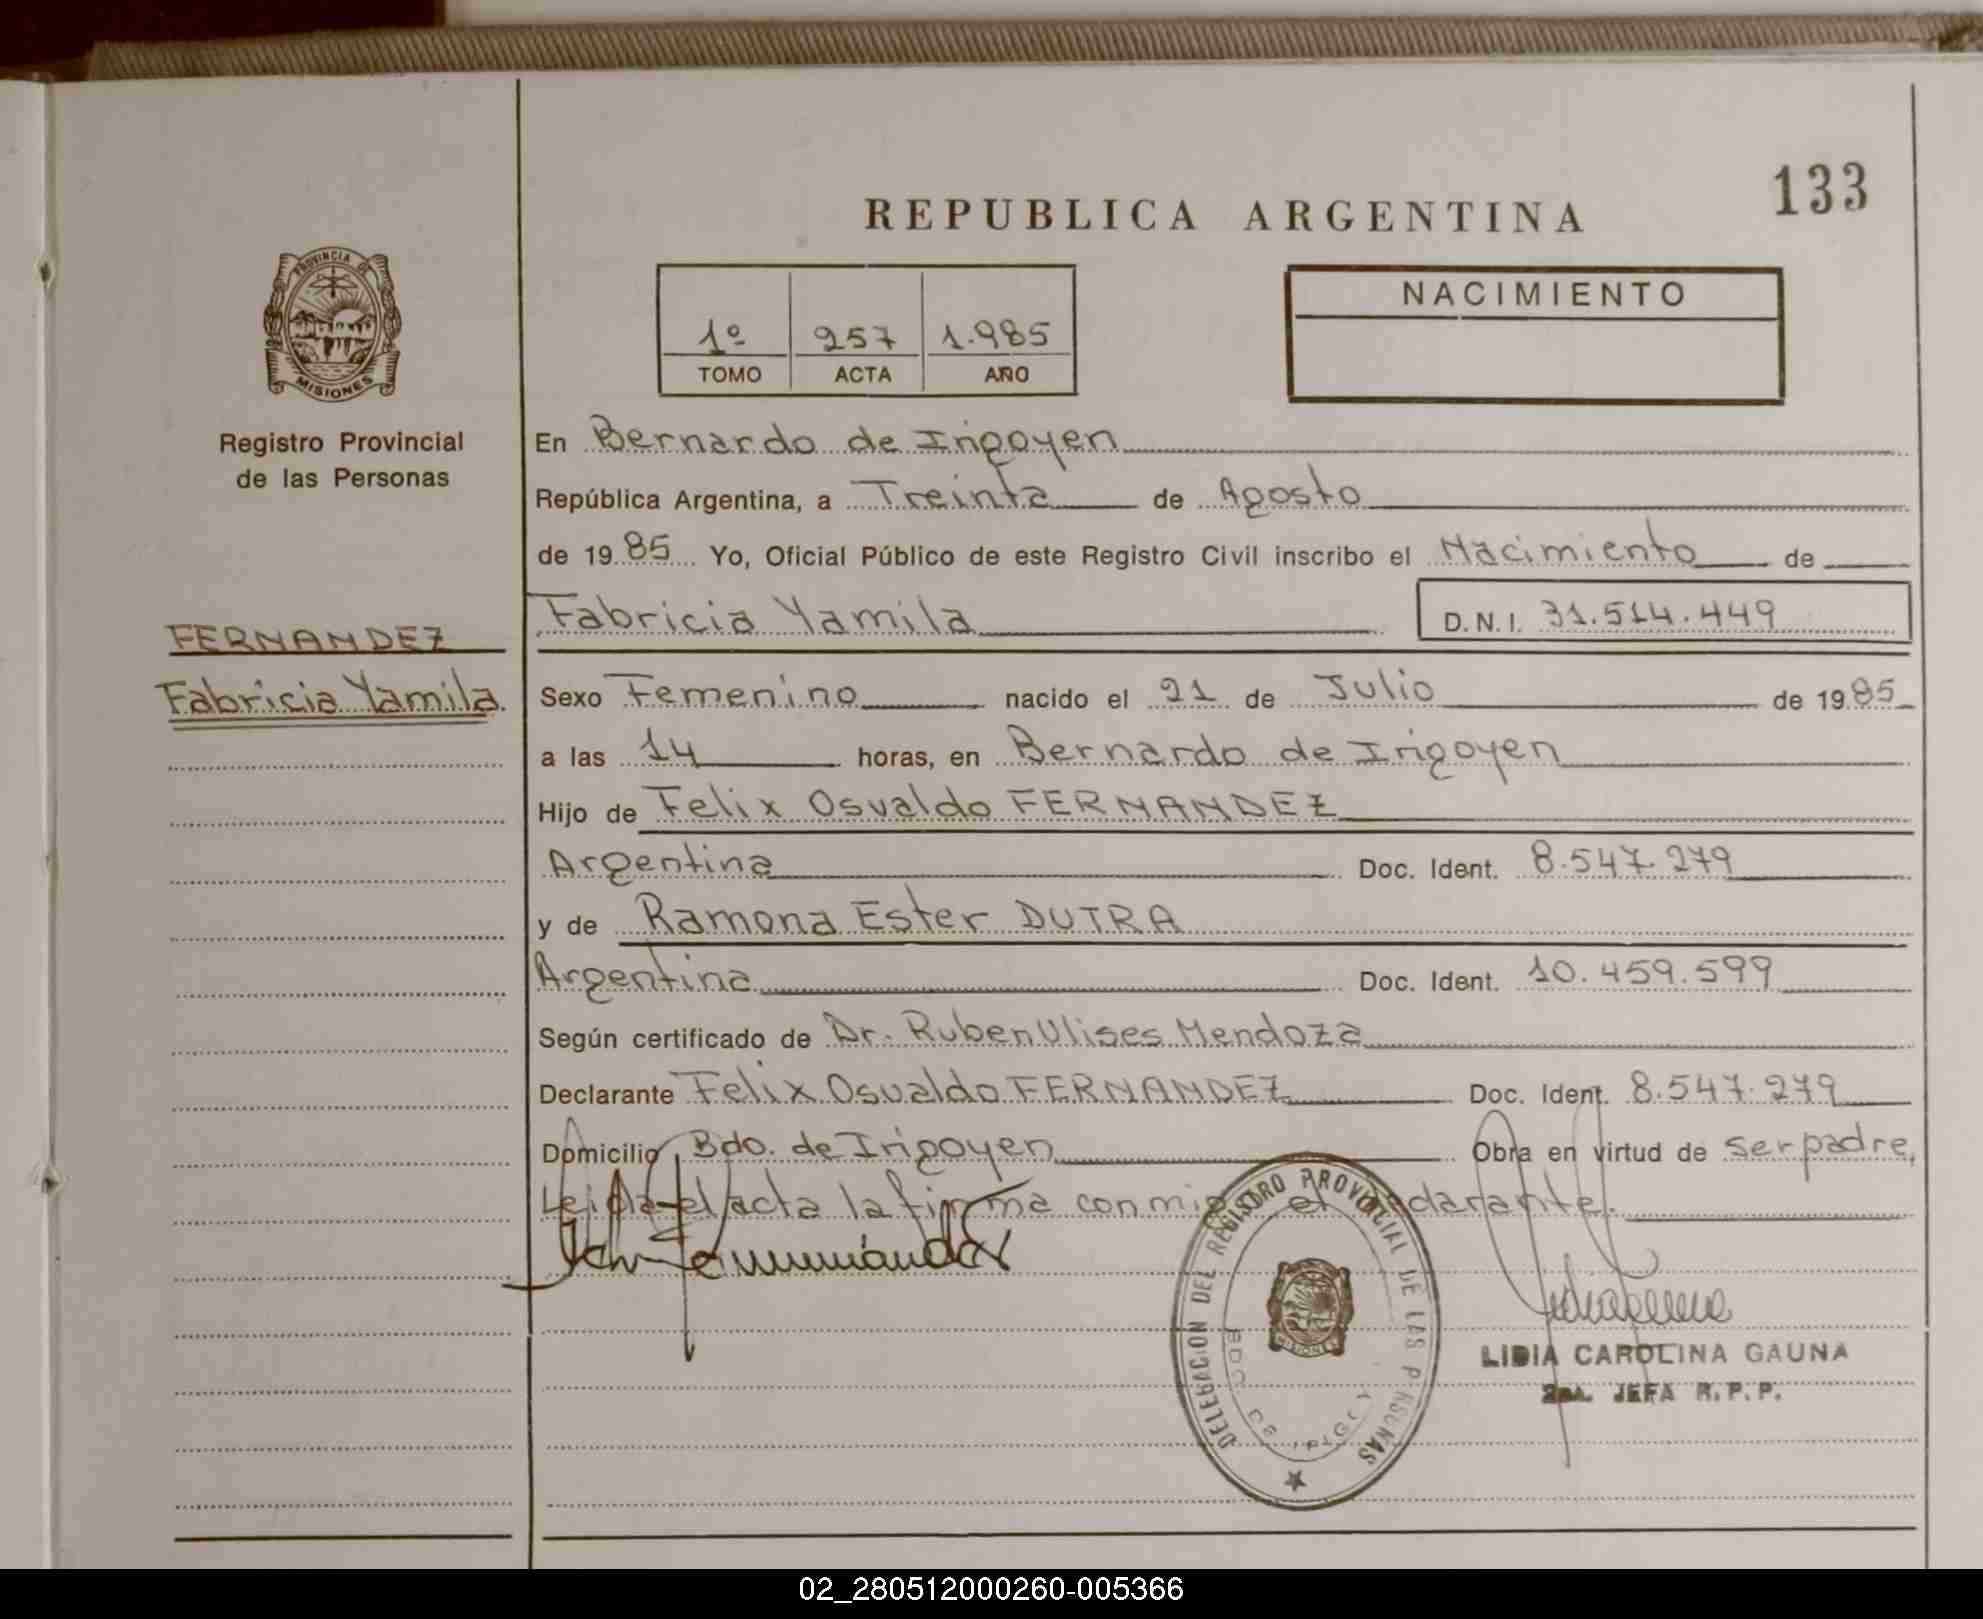 133
REPUBLICA ARGENTINA
PROVINCIA DE
MISIONES
1º 257 1.985
TOMO ACTA AÑO
NACIMIENTO
Registro Provincial
de las Personas
En Bernardo de Irigoyen
República Argentina, a Treinta de Agosto
de 19 85 Yo, Oficial Público de este Registro Civil inscribo el Nacimiento de
Fabricia Yamila D.N.I. 31.514.449
FERNANDEZ
Fabricia Yamila.
Sexo Femenino nacido el 21 de Julio de 19 85
a las 14 horas, en Bernardo de Irigoyen
Hijo de Felix Osvaldo FERNANDEZ
Argentina Doc. Ident. 8.547.279
y de Ramona Ester DUTRA
Argentina Doc. Ident. 10.459.599
Según certificado de Dr. Ruben Ulises Mendoza
Declarante Felix Osvaldo FERNANDEZ Doc. Ident. 8.547.279
Domicilio Bdo. de Irigoyen Obra en virtud de ser padre,
Leida el acta la firma conmigo el declarante.
DELEGACION DEL REGISTRO PROVINCIAL DE LAS PERSONAS
MISIONES
LIDIA CAROLINA GAUNA
2da. JEFA R.P.P.
02_280512000260-005366